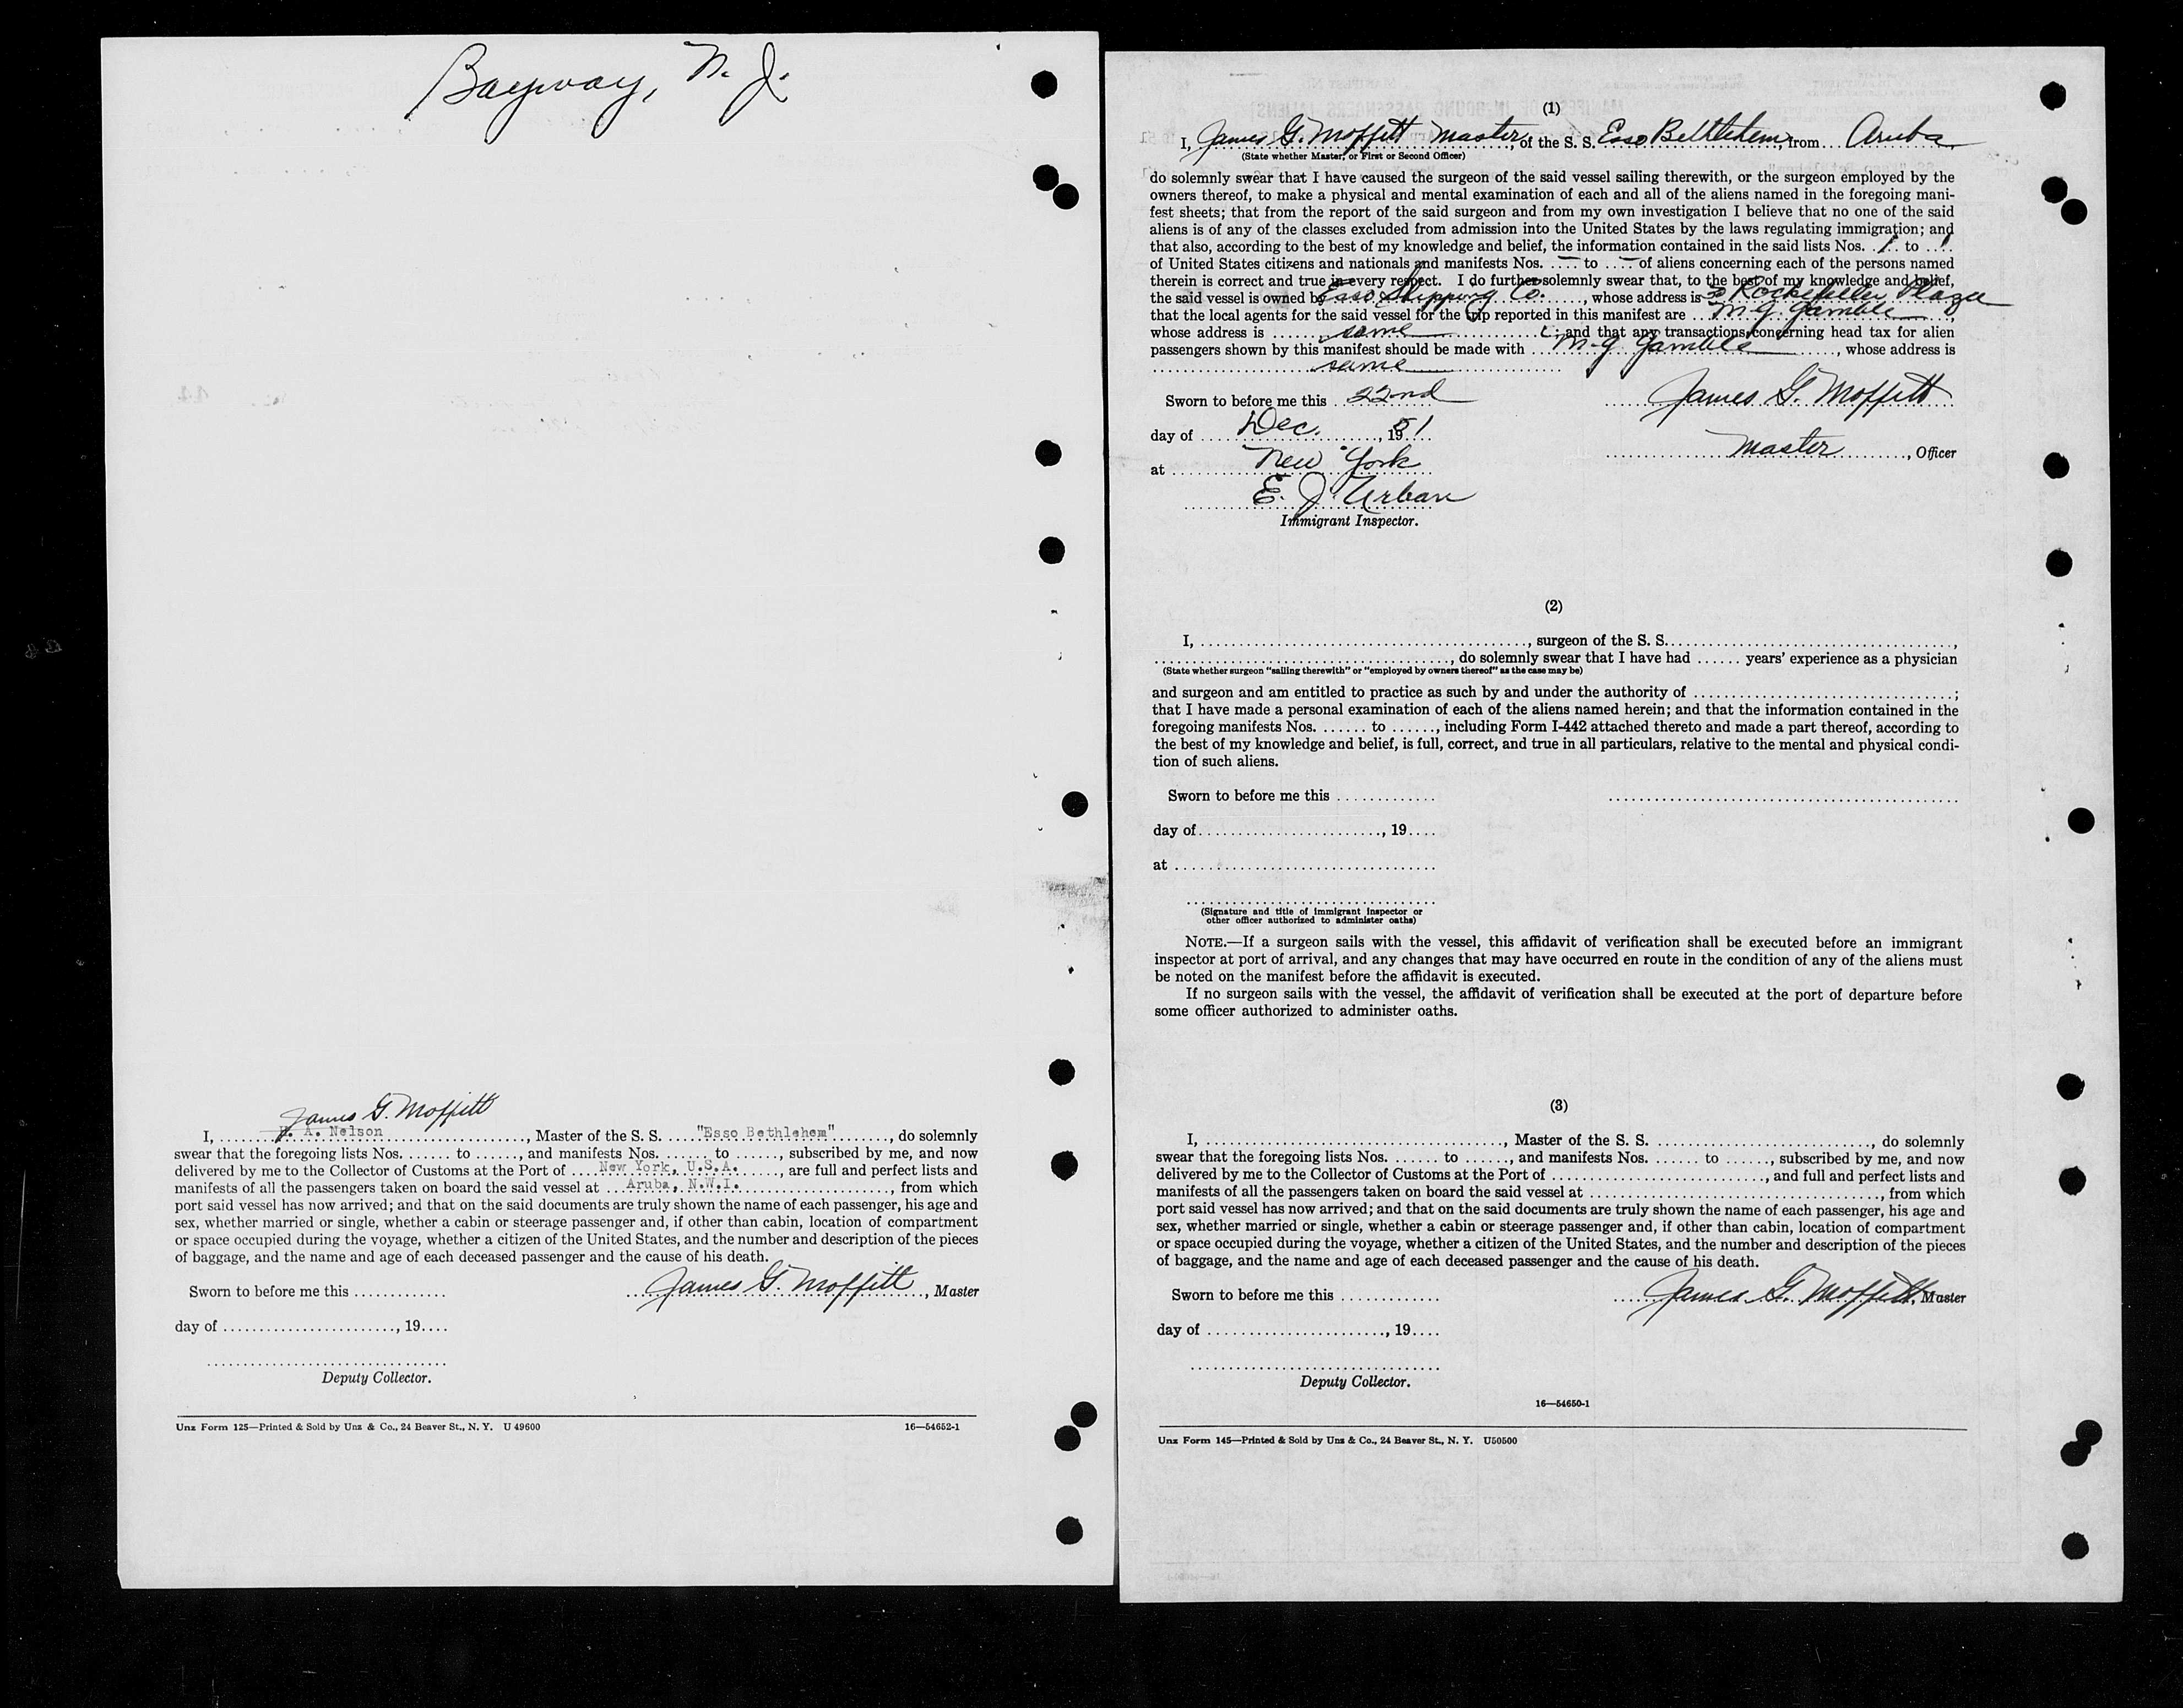 Bayway, N. J.
James G. Moffitt
I, ........ A. Nelson ........, Master of the S. S. ...."Esso Bethlehem"........, do solemnly
swear that the foregoing lists Nos. ....... to ......, and manifests Nos. ....... to ......, subscribed by me, and now
delivered by me to the Collector of Customs at the Port of ....New York, U.S.A. ......, are full and perfect lists and
manifests of all the passengers taken on board the said vessel at ...Aruba, N.W.I. ................, from which
port said vessel has now arrived; and that on the said documents are truly shown the name of each passenger, his age and
sex, whether married or single, whether a cabin or steerage passenger and, if other than cabin, location of compartment
or space occupied during the voyage, whether a citizen of the United States, and the number and description of the pieces
of baggage, and the name and age of each deceased passenger and the cause of his death.
Sworn to before me this .............
James G. Moffitt, Master
day of ........................, 19....
Deputy Collector.
Unz Form 125—Printed & Sold by Unz & Co., 24 Beaver St., N. Y. U 49600
16—54652-1
(1)
I, James G. Moffitt Master, of the S. S. Esso Bethlehem, from Aruba
(State whether Master, or First or Second Officer)
do solemnly swear that I have caused the surgeon of the said vessel sailing therewith, or the surgeon employed by the
owners thereof, to make a physical and mental examination of each and all of the aliens named in the foregoing mani-
fest sheets; that from the report of the said surgeon and from my own investigation I believe that no one of the said
aliens is of any of the classes excluded from admission into the United States by the laws regulating immigration; and
that also, according to the best of my knowledge and belief, the information contained in the said lists Nos. 1 to 1
of United States citizens and nationals and manifests Nos. — to — of aliens concerning each of the persons named
therein is correct and true in every respect. I do further solemnly swear that, to the best of my knowledge and belief,
the said vessel is owned by Esso Shipping Co. ....., whose address is Rockefeller Plaza
that the local agents for the said vessel for the trip reported in this manifest are M. G. Gamble,
whose address is same; and that any transactions concerning head tax for alien
passengers shown by this manifest should be made with M. G. Gamble, whose address is
same
Sworn to before me this 22nd
James G. Moffitt
day of Dec., 1951
Master, Officer
at New York
E. J. Urban
Immigrant Inspector.
(2)
I, ........................................, surgeon of the S. S. ....................................,
......................................, do solemnly swear that I have had ...... years' experience as a physician
(State whether surgeon "sailing therewith" or "employed by owners thereof" as the case may be)
and surgeon and am entitled to practice as such by and under the authority of .................................;
that I have made a personal examination of each of the aliens named herein; and that the information contained in the
foregoing manifests Nos. ....... to ......, including Form I-442 attached thereto and made a part thereof, according to
the best of my knowledge and belief, is full, correct, and true in all particulars, relative to the mental and physical condi-
tion of such aliens.
Sworn to before me this .............
day of........................, 19....
at ..................................
(Signature and title of immigrant inspector or
other officer authorized to administer oaths)
NOTE.—If a surgeon sails with the vessel, this affidavit of verification shall be executed before an immigrant
inspector at port of arrival, and any changes that may have occurred en route in the condition of any of the aliens must
be noted on the manifest before the affidavit is executed.
If no surgeon sails with the vessel, the affidavit of verification shall be executed at the port of departure before
some officer authorized to administer oaths.
(3)
I, ......................................, Master of the S. S. ............................, do solemnly
swear that the foregoing lists Nos. ....... to ......, and manifests Nos. ....... to ......, subscribed by me, and now
delivered by me to the Collector of Customs at the Port of ............................, and full and perfect lists and
manifests of all the passengers taken on board the said vessel at ......................................, from which
port said vessel has now arrived; and that on the said documents are truly shown the name of each passenger, his age and
sex, whether married or single, whether a cabin or steerage passenger and, if other than cabin, location of compartment
or space occupied during the voyage, whether a citizen of the United States, and the number and description of the pieces
of baggage, and the name and age of each deceased passenger and the cause of his death.
Sworn to before me this .............
James G. Moffitt, Master
day of ........................, 19....
Deputy Collector.
16—54650-1
Unz Form 145—Printed & Sold by Unz & Co., 24 Beaver St., N. Y. U50500